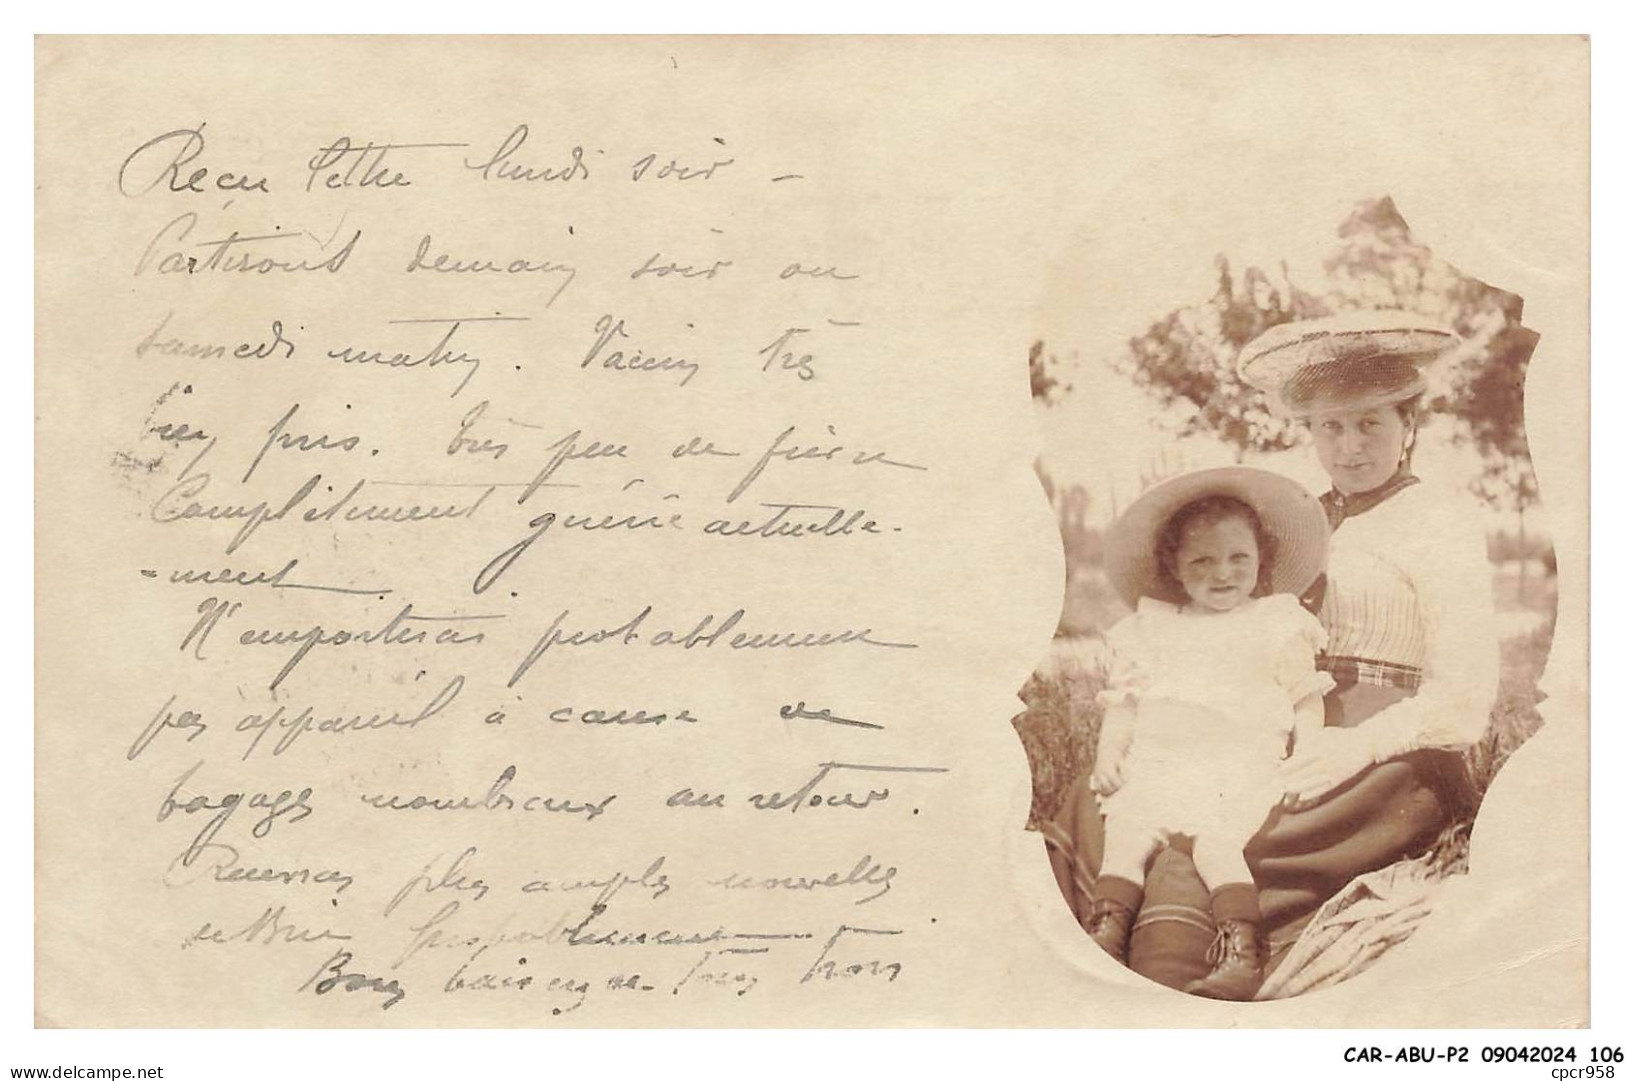 Reçu lettre lundi soir –
Partirons demain soir ou
samedi matin. Vaccin très
bien pris. très peu de fièvre
Complètement guérie actuelle-
-ment.
N'emporterai probablement
pas appareil à cause de
bagages nombreux au retour.
plus amples nouvelles
probablement
Bons baisers de tous trois
CAR-ABU-P2 09042024 106
delcampe.net
cpcr958